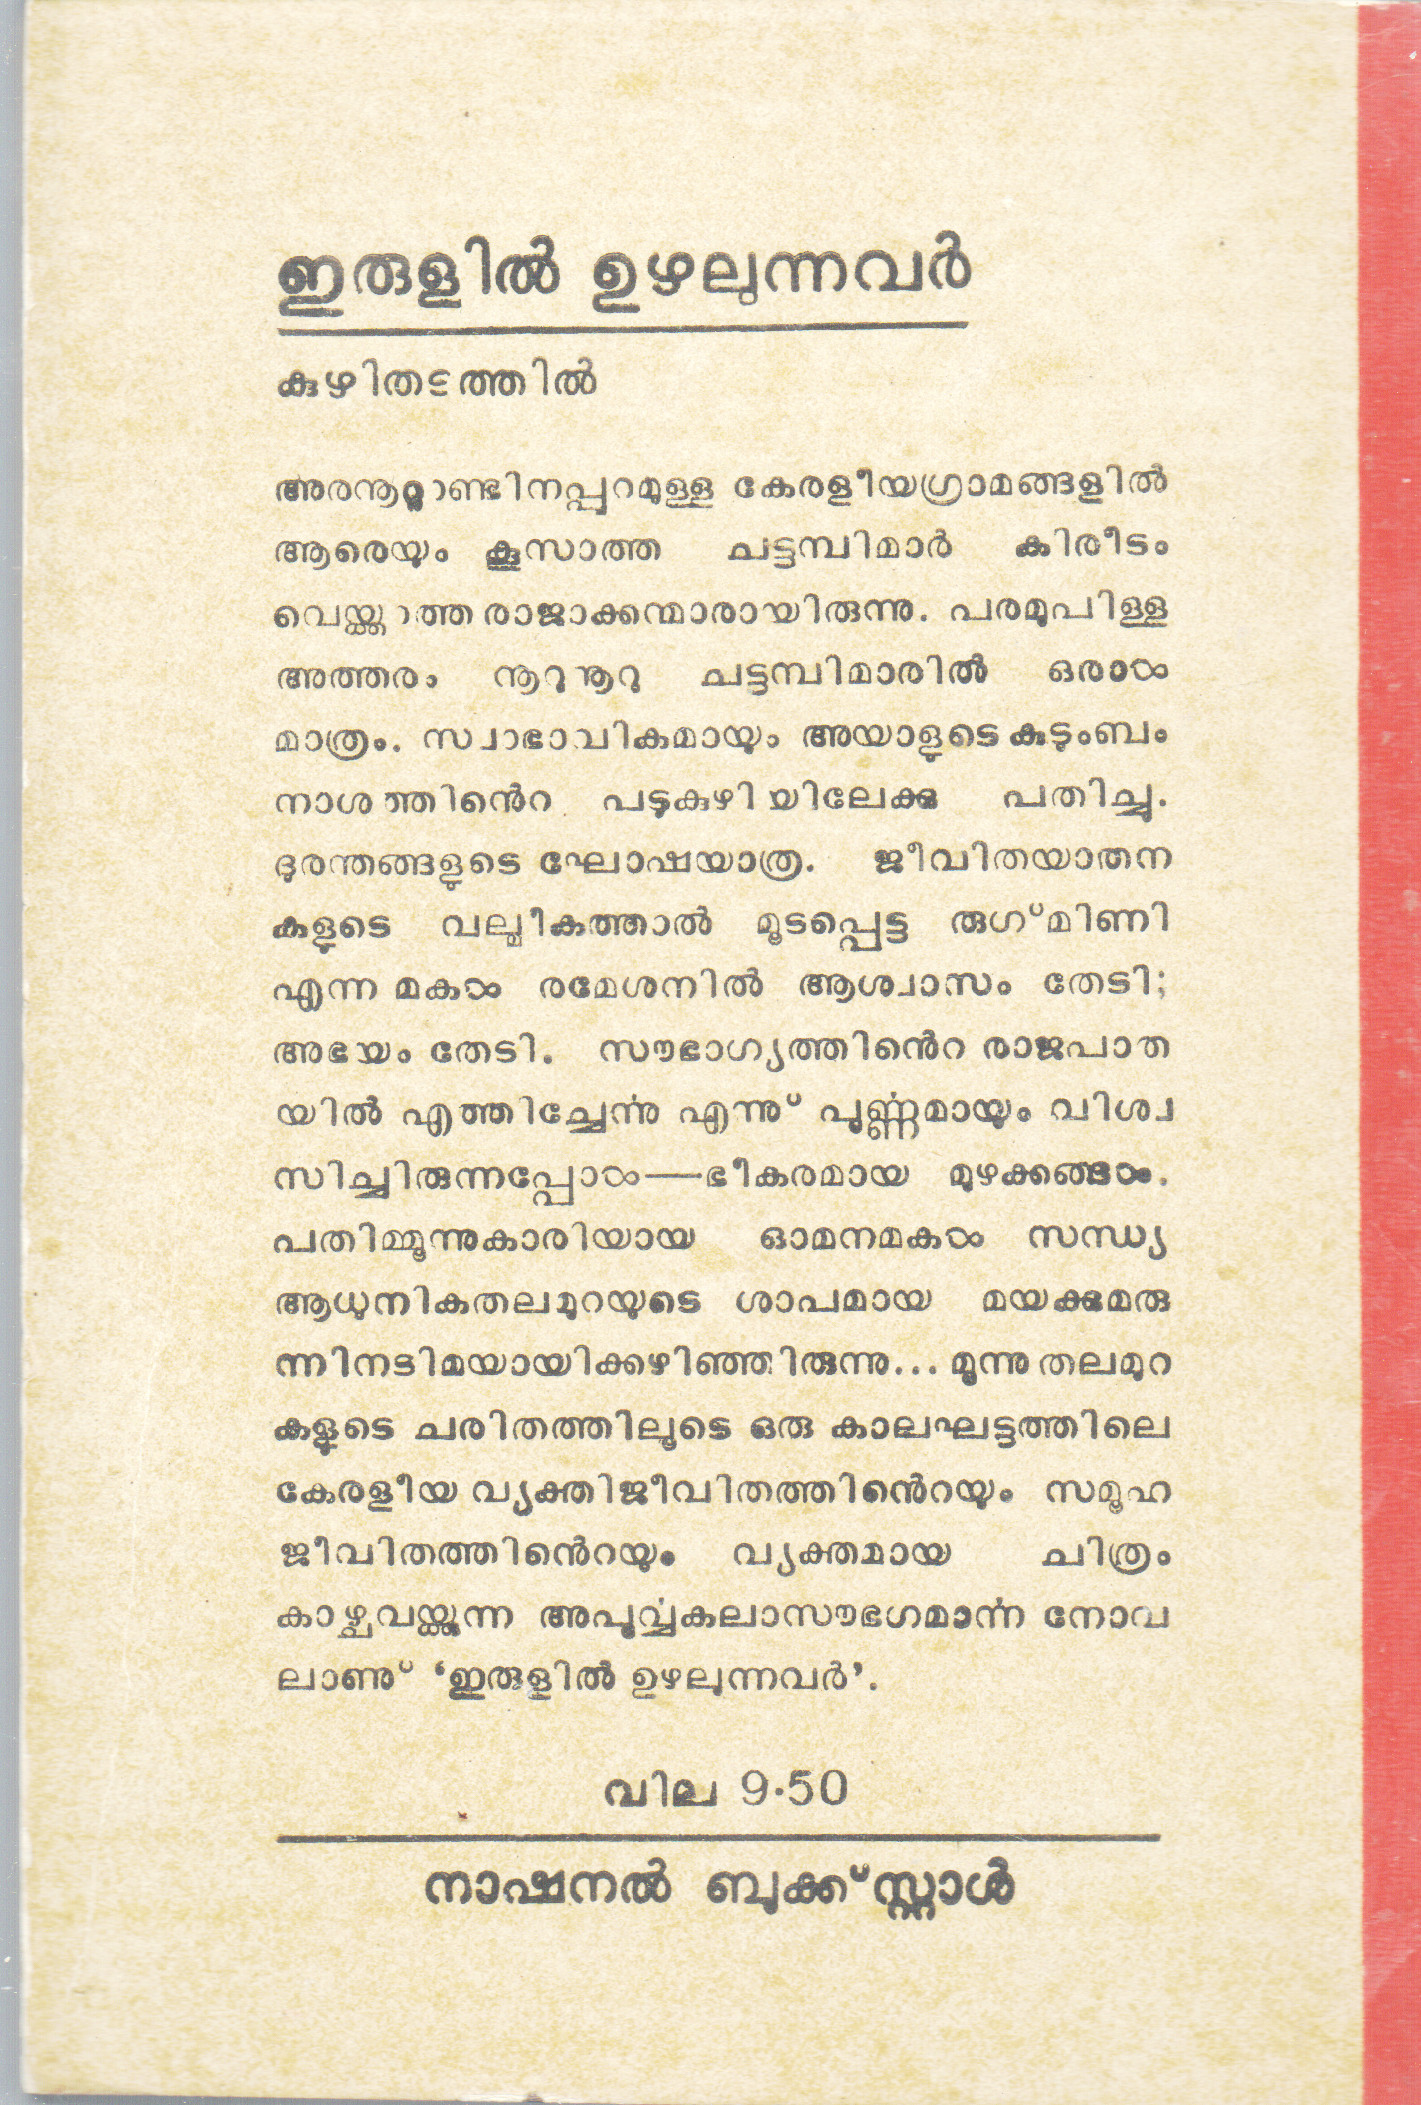 ഇരുളിൽ ഉഴലുന്നവർ
കുഴിതടത്തിൽ
അരനൂറ്റാണ്ടിനപ്പുറമുള്ള കേരളീയഗ്രാമങ്ങളിൽ
ആരെയും കൂസാത്ത ചട്ടമ്പിമാർ കിരീടം
വെയ്ക്കാത്ത രാജാക്കന്മാരായിരുന്നു. പരമുപിള്ള
അത്തരം നൂറുനൂറു ചട്ടമ്പിമാരിൽ ഒരാൾ
മാത്രം. സ്വാഭാവികമായും അയാളുടെ കുടുംബം
നാശത്തിൻെറ പടുകുഴിയിലേക്കു പതിച്ചു.
ദുരന്തങ്ങളുടെ ഘോഷയാത്ര. ജീവിതയാതന
കളുടെ വല്മീകത്താൽ മൂടപ്പെട്ട രുഗ്മിണി
എന്ന മകൾ രമേശനിൽ ആശ്വാസം തേടി;
അഭയം തേടി. സൗഭാഗ്യത്തിൻെറ രാജപാത
യിൽ എത്തിച്ചേർന്നു എന്നു് പൂർണ്ണമായും വിശ്വ
സിച്ചിരുന്നപ്പോൾ—ഭീകരമായ മുഴക്കങ്ങൾ.
പതിമ്മൂന്നുകാരിയായ ഓമനമകൾ സന്ധ്യ
ആധുനികതലമുറയുടെ ശാപമായ മയക്കുമരു
ന്നിനടിമയായിക്കഴിഞ്ഞിരുന്നു... മൂന്നു തലമുറ
കളുടെ ചരിതത്തിലൂടെ ഒരു കാലഘട്ടത്തിലെ
കേരളീയ വ്യക്തിജീവിതത്തിൻെറയും സമൂഹ
ജീവിതത്തിൻെറയും വ്യക്തമായ ചിത്രം
കാഴ്ചവയ്ക്കുന്ന അപൂർവ്വകലാസൗഭഗമാർന്ന നോവ
ലാണു് ‘ഇരുളിൽ ഉഴലുന്നവർ’.
വില 9·50
നാഷനൽ ബുക്ക് സ്റ്റാൾ